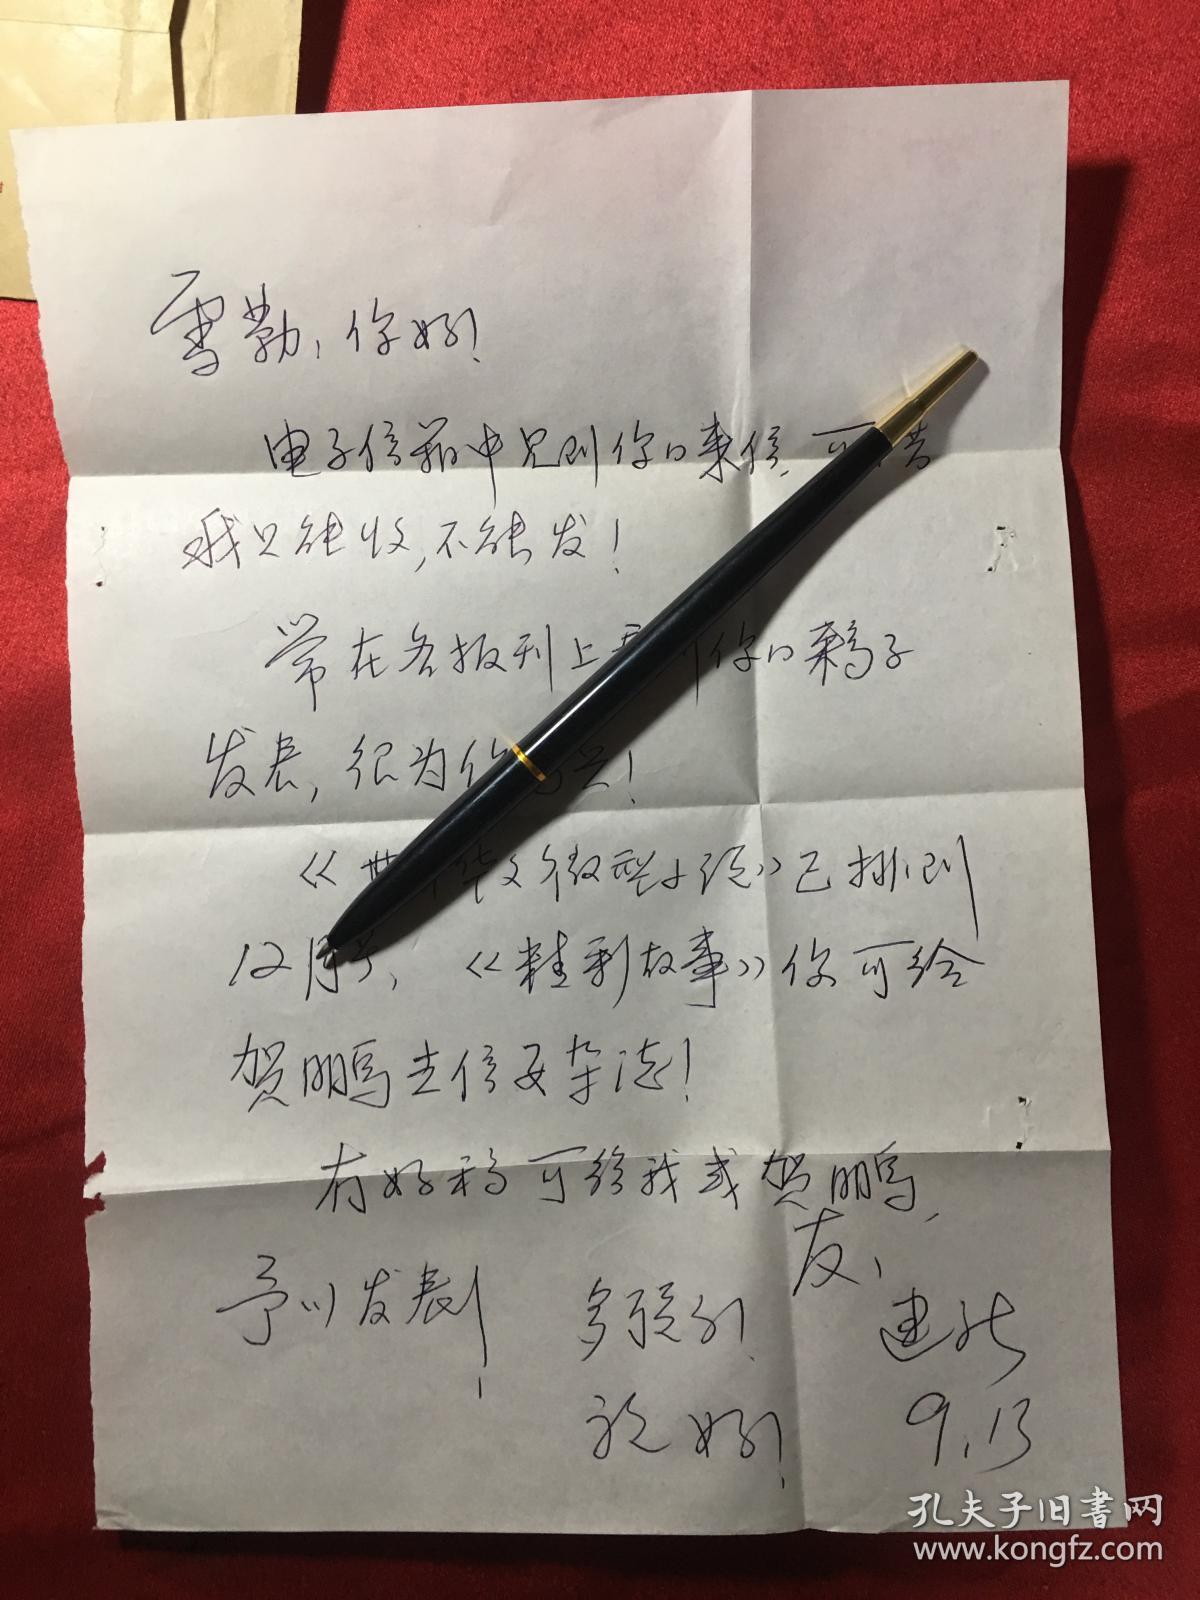 雪勤，你好！
电子信箱中见到你的来信，可惜
我只能收，不能发！
常在各报刊上看到你的稿子
发表，很为你高兴！
《世界华文微型小说》已排到
12月号，《精彩故事》你可给
贺鹏去信要杂志！
有好稿可给我或贺鹏，
予以发表！
多联系！
友，
建
祝好！
9.13
孔夫子旧书网
www.kongfz.com